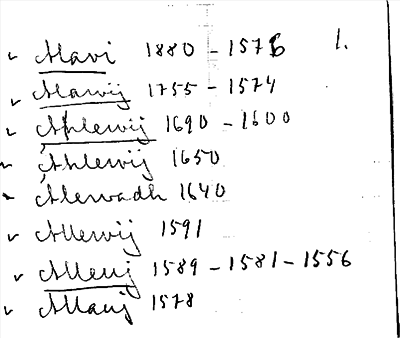 Alavi 1880 - 1576 1.
Alawij 1755 - 1574
Ahlewij 1690 - 1600
Ahlewij 1650
Alewadh 1640
Allewij 1591
Allevij 1589 - 1581 - 1556
Allavij 1578